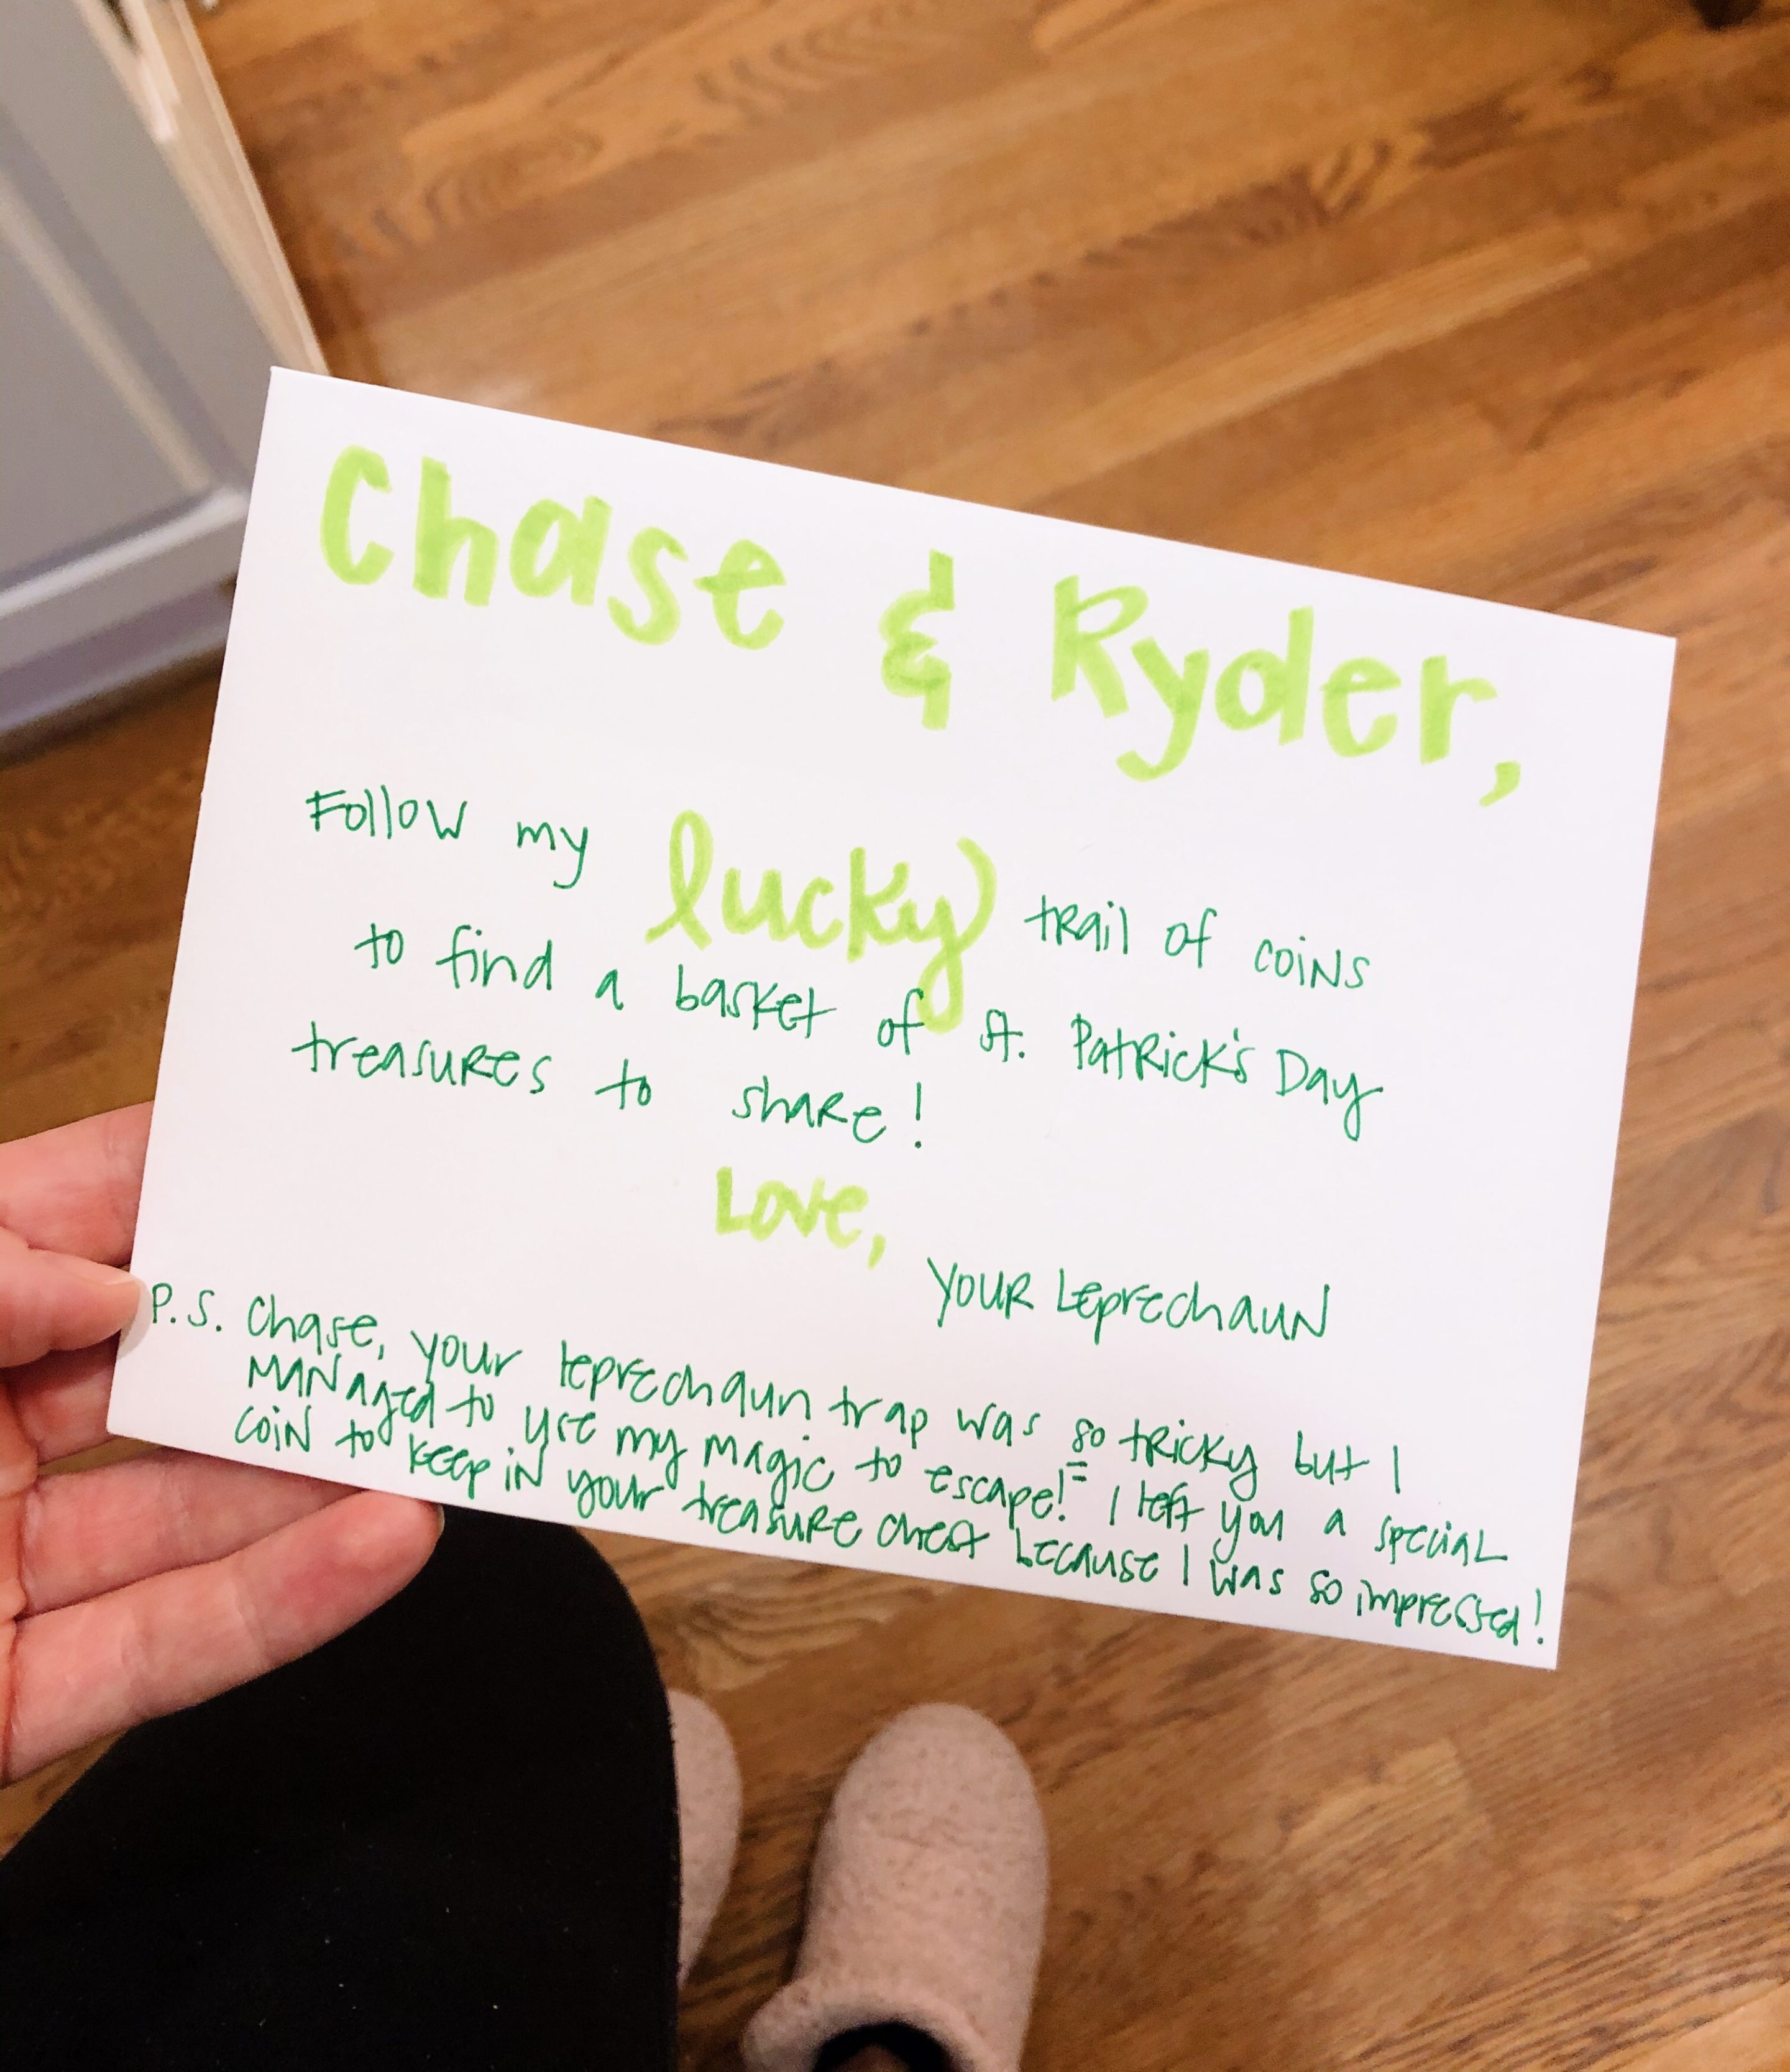 Chase & Ryder,
Follow my lucky trail of coins
to find a basket of St. Patrick's Day
treasures to share!
Love,
Your Leprechaun
P.S. Chase, your leprechaun trap was so tricky but I
managed to use my magic to escape! I left you a special
coin to keep in your treasure chest because I was so impressed!